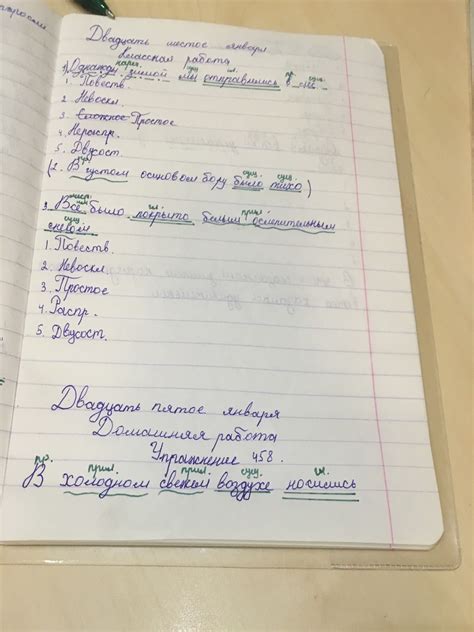 Двадцать шестое января
Классная работа
нареч. сущ. гл. сущ.
1) Однажды зимой мы отправились в
1. Повеств.
2. Невоскл.
3. Сложное Простое
4. Нераспр.
5. Двусост.
пр. сущ. сущ.
(2. В густом осиновом бору было тихо.)
мест. гл. прил.
3. Всё было покрыто белым ослепительным
сущ.
снегом.
1. Повеств.
2. Невоскл.
3. Простое
4. Распр.
5. Двусост.
Двадцать пятое января
Домашняя работа
Упражнение 458.
пр. прил. прил. сущ. гл.
В холодном свежем воздухе носились